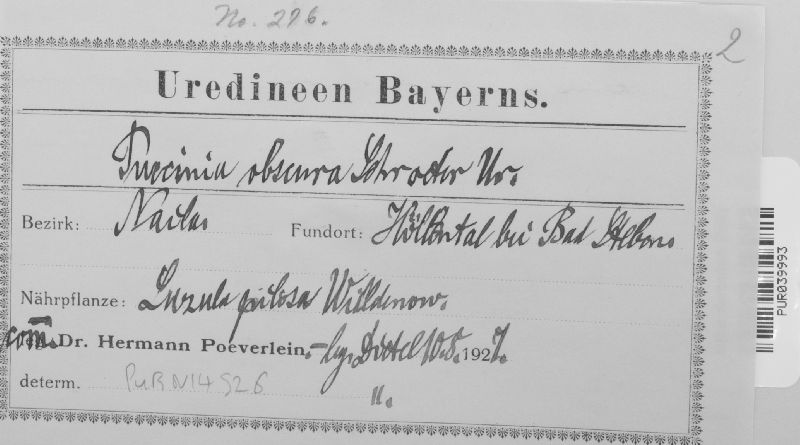 No. 296.
2
Uredineen Bayerns.
Puccinia obscura Schroeter Ur.
Bezirk: Naila. Fundort: Höllental bei Bad Steben.
Nährpflanze: Luzula pilosa Willdenow.
com. Dr. Hermann Poeverlein. – leg. Dittel 10.5. 1927.
determ. PUR N14926 „.
PUR039993